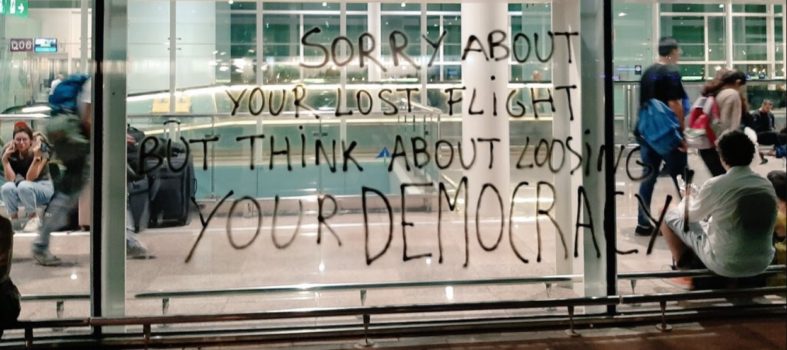 Q06
SORRY ABOUT
YOUR LOST FLIGHT
BUT THINK ABOUT LOOSING
YOUR DEMOCRACY